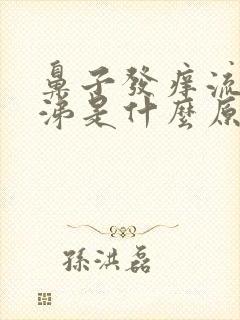 鼻子發癢流
涕是什麼原
孫洪磊